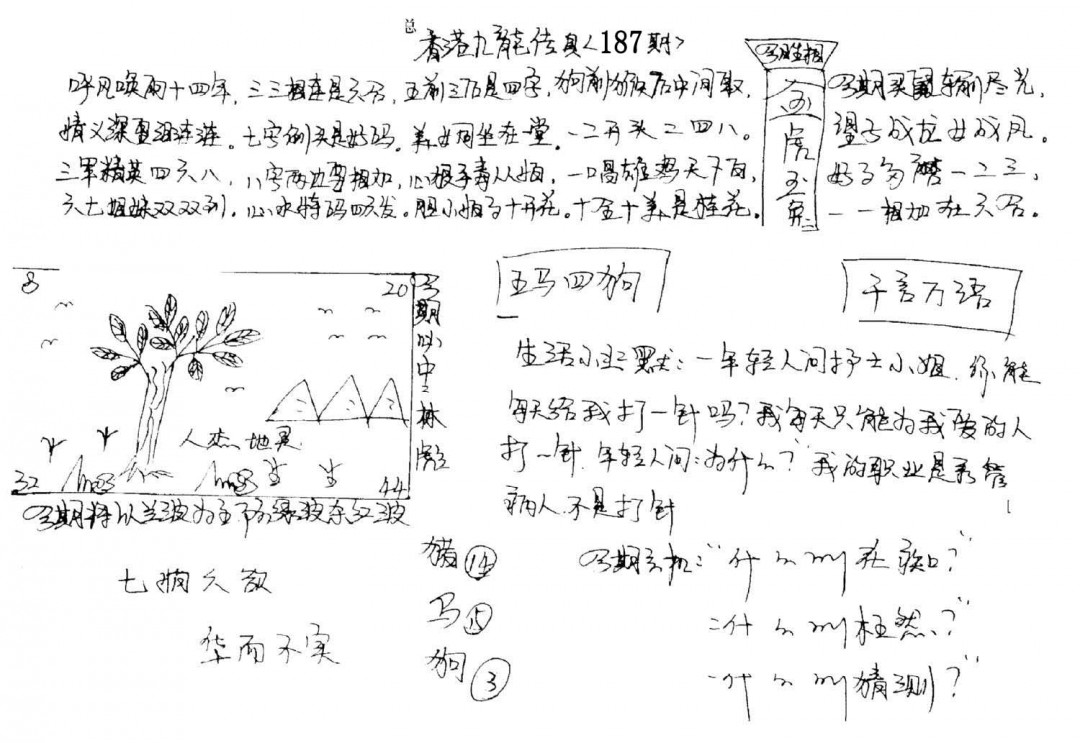 香港九龙传真<187期>
呼风唤雨十四年，三三相连是六合，五前三后是四字，狗前猴后中间取，
情义深重泪涟涟。七字倒头是好码。美女同坐在堂。一二开头二四八。
三军精英四六八，八字两边要相加，心狠手毒从烦，一唱雄鸡天下白，
六七姐妹双双到，心水特码四六发。胆小如马十开花。十全十美是桂花。
今期买 输刷尽光，
望子成龙女成凤。
好马 一二三，
一一相加在六合。
今期生相
金
虎
玉
兔
8
20
人杰地灵
32
44
今期必中 林
五马四狗
千言万语
生活小 默：一年轻人问护士小姐，你能
每天给我打一针吗？我每天只能为我爱的人
打一针，年轻人问：为什么？我的职业是 管
病人，不是打针
今期将以兰波为主下的绿波东红波
七 欠
华而不实
猪⑭
马⑮
狗③
今期玄机：“什么叫在 口？”
二什么叫枉然？”
一什么叫猜测？”